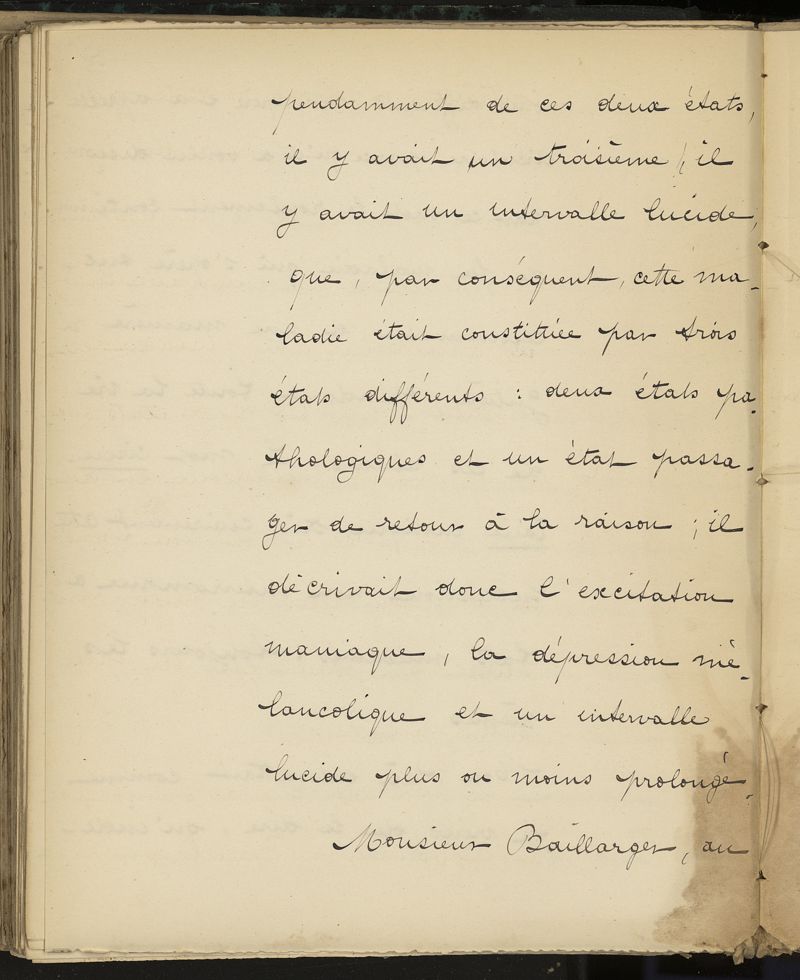 pendamment de ces deux états,
il y avait un troisième ; il
y avait un intervalle lucide,
que, par conséquent, cette ma-
ladie était constituée par trois
états différents : deux états pa-
thologiques et un état passa-
ger de retour à la raison ; il
décrivait donc l'excitation
maniaque, la dépression mé-
lancolique et un intervalle
lucide plus ou moins prolongé.
Monsieur Baillarger, au